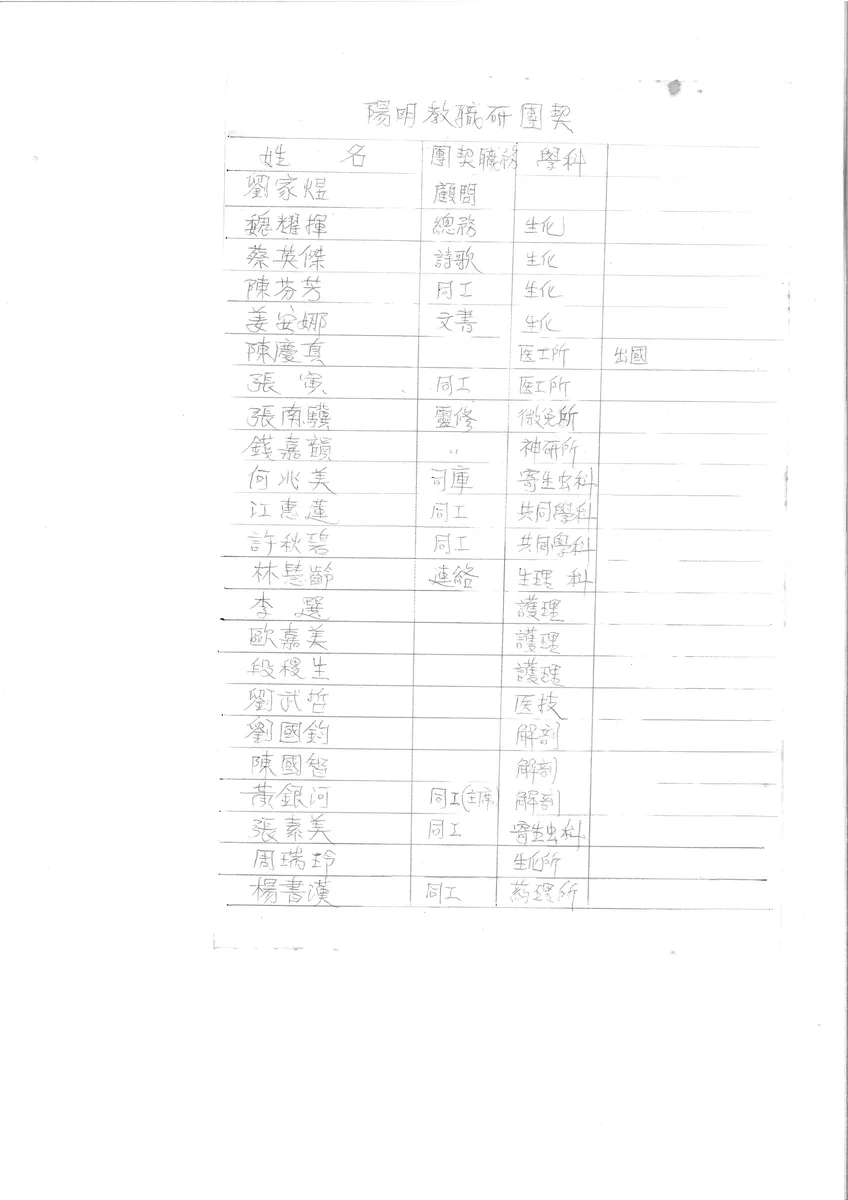 陽明教職研團契
姓名 團契職務 學科
劉家煜 顧問
魏耀揮 總務 生化
蔡英傑 詩歌 生化
陳芬芳 同工 生化
姜安娜 文書 生化
陳慶真 医工所 出國
張寅 同工 医工所
張南驥 靈修 微免所
錢嘉韻 〃 神研所
何兆美 司庫 寄生虫科
江惠蓮 同工 共同學科
許秋碧 同工 共同學科
林慧齡 連絡 生理科
李選 護理
歐嘉美 護理
段稷生 護理
劉武哲 医技
劉國鈞 解剖
陳國智 解剖
黃銀河 同工(主席) 解剖
張素美 同工 寄生虫科
周瑞玲 生化所
楊書漢 同工 葯理所